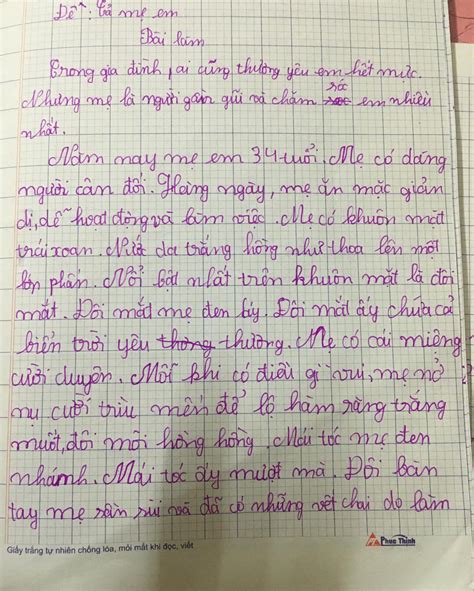 Đề: Tả mẹ em
Bài làm
Trong gia đình, ai cũng thương yêu em hết mực.
sóc
Nhưng mẹ là người gần gũi và chăm em nhiều
nhất.
Năm nay mẹ em 34 tuổi. Mẹ có dáng
người cân đối. Hàng ngày, mẹ ăn mặc giản
dị, dễ hoạt động và làm việc. Mẹ có khuôn mặt
trái xoan. Nước da trắng hồng như thoa lên một
lớn phấn. Nổi bật nhất trên khuôn mặt là đôi
mắt. Đôi mắt mẹ đen láy. Đôi mắt ấy chứa cả
biển trời yêu thương thương. Mẹ có cái miệng
cười duyên. Mỗi khi có điều gì vui, mẹ nở
nụ cười trìu mến để lộ hàm răng trắng
muốt, đôi môi hồng hồng. Mái tóc mẹ đen
nhánh. Mái tóc ấy mượt mà. Đôi bàn
tay mẹ sần sùi và đã có những vết chai do làm
Giấy trắng tự nhiên chống lóa, mỏi mắt khi đọc, viết
Phuc Thinh